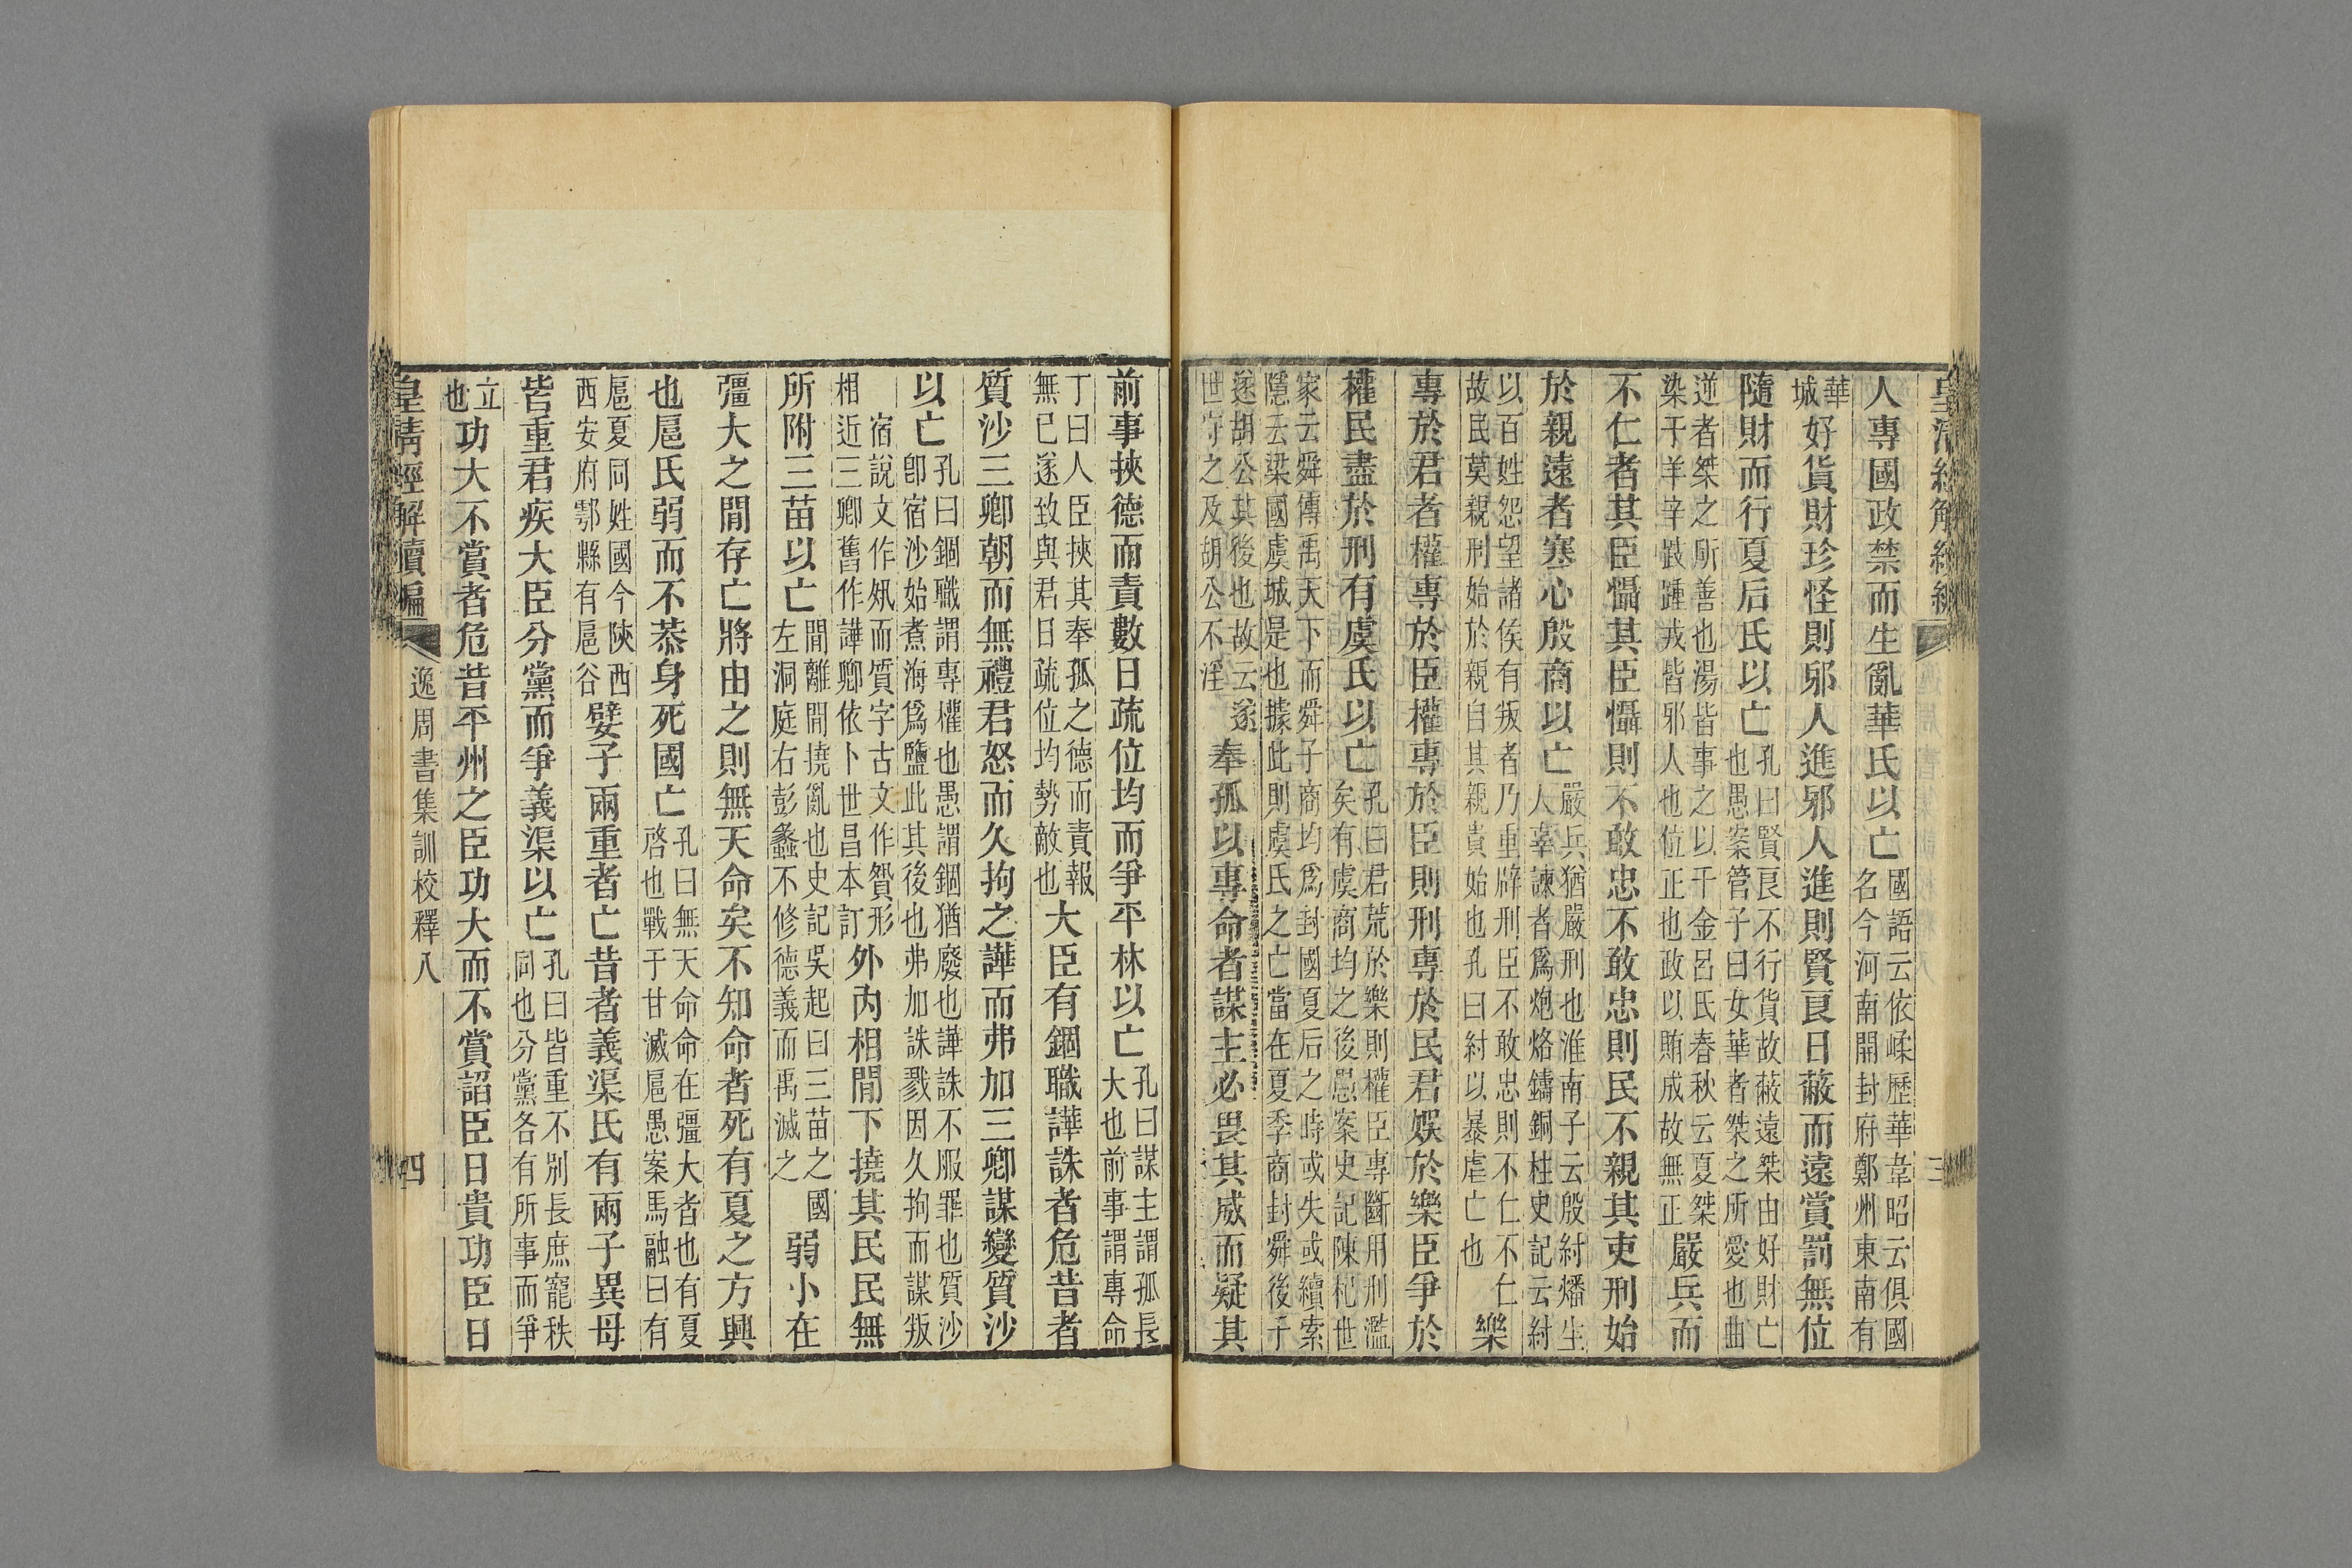 人專國政禁而生亂華氏以亡
國語云依㟅歷華韋昭云俱國
名今河南開封府鄭州東南有
華
城
好貨財珍怪則邪人進邪人進則賢良日蔽而遠賞罰無位
隨財而行夏后氏以亡
孔曰賢良不行貨故蔽遠桀由好財亡
也愚案管子曰女華者桀之所愛也曲
逆者桀之所善也湯皆事之以千金呂氏春秋云夏桀
染于羊辛跂踵戎皆邪人也位正也政以賄成故無正
嚴兵而
不仁者其臣懾其臣懾則不敢忠不敢忠則民不親其吏刑始
於親遠者寒心殷商以亡
嚴兵猶嚴刑也淮南子云殷紂燔生
人辜諫者爲炮烙鑄銅柱史記云紂
以百姓怨望諸侯有叛者乃重辟刑臣不敢忠則不仁不仁
故民莫親刑始於親自其親貴始也孔曰紂以暴虐亡也
樂
專於君者權專於臣權專於臣則刑專於民君娛於樂臣爭於
權民盡於刑有虞氏以亡
孔曰君荒於樂則權臣專斷用刑濫
矣有虞商均之後愚案史記陳杞世
家云舜傳禹天下而舜子商均爲封國夏后之時或失或續索
隱云梁國虞城是也據此則虞氏之亡當在夏季商封舜後于
遂胡公其後也故云遂
世守之及胡公不淫
奉孤以專命者謀主必畏其威而疑其
前事挾德而責數日疏位均而爭平林以亡
孔曰謀主謂孤長
大也前事謂專命
丁曰人臣挾其奉孤之德而責報
無已遂致與君日疏位均勢敵也
大臣有錮職譁誅者危昔者
質沙三卿朝而無禮君怒而久拘之譁而弗加三卿謀變質沙
以亡
孔曰錮職謂專權也愚謂錮猶廢也譁誅不服罪也質沙
卽宿沙始煮海爲鹽此其後也弗加誅戮因久拘而謀叛
宿說文作夙而質字古文作䝼形
相近三卿舊作譁卿依卜世昌本訂
外內相閒下撓其民民無
所附三苗以亡
閒離閒撓亂也史記吳起曰三苗之國
左洞庭右彭蠡不修德義而禹滅之
弱小在
彊大之閒存亡將由之則無天命矣不知命者死有夏之方興
也扈氏弱而不恭身死國亡
孔曰無天命命在彊大者也有夏
啓也戰于甘滅扈愚案馬融曰有
扈夏同姓國今陝西
西安府鄠縣有扈谷
嬖子兩重者亡昔者義渠氏有兩子異母
皆重君疾大臣分黨而爭義渠以亡
孔曰皆重不別長庶寵秩
同也分黨各有所事而爭
立
也
功大不賞者危昔平州之臣功大而不賞諂臣日貴功臣日
皇清經解續編
逸周書集訓校釋八
四